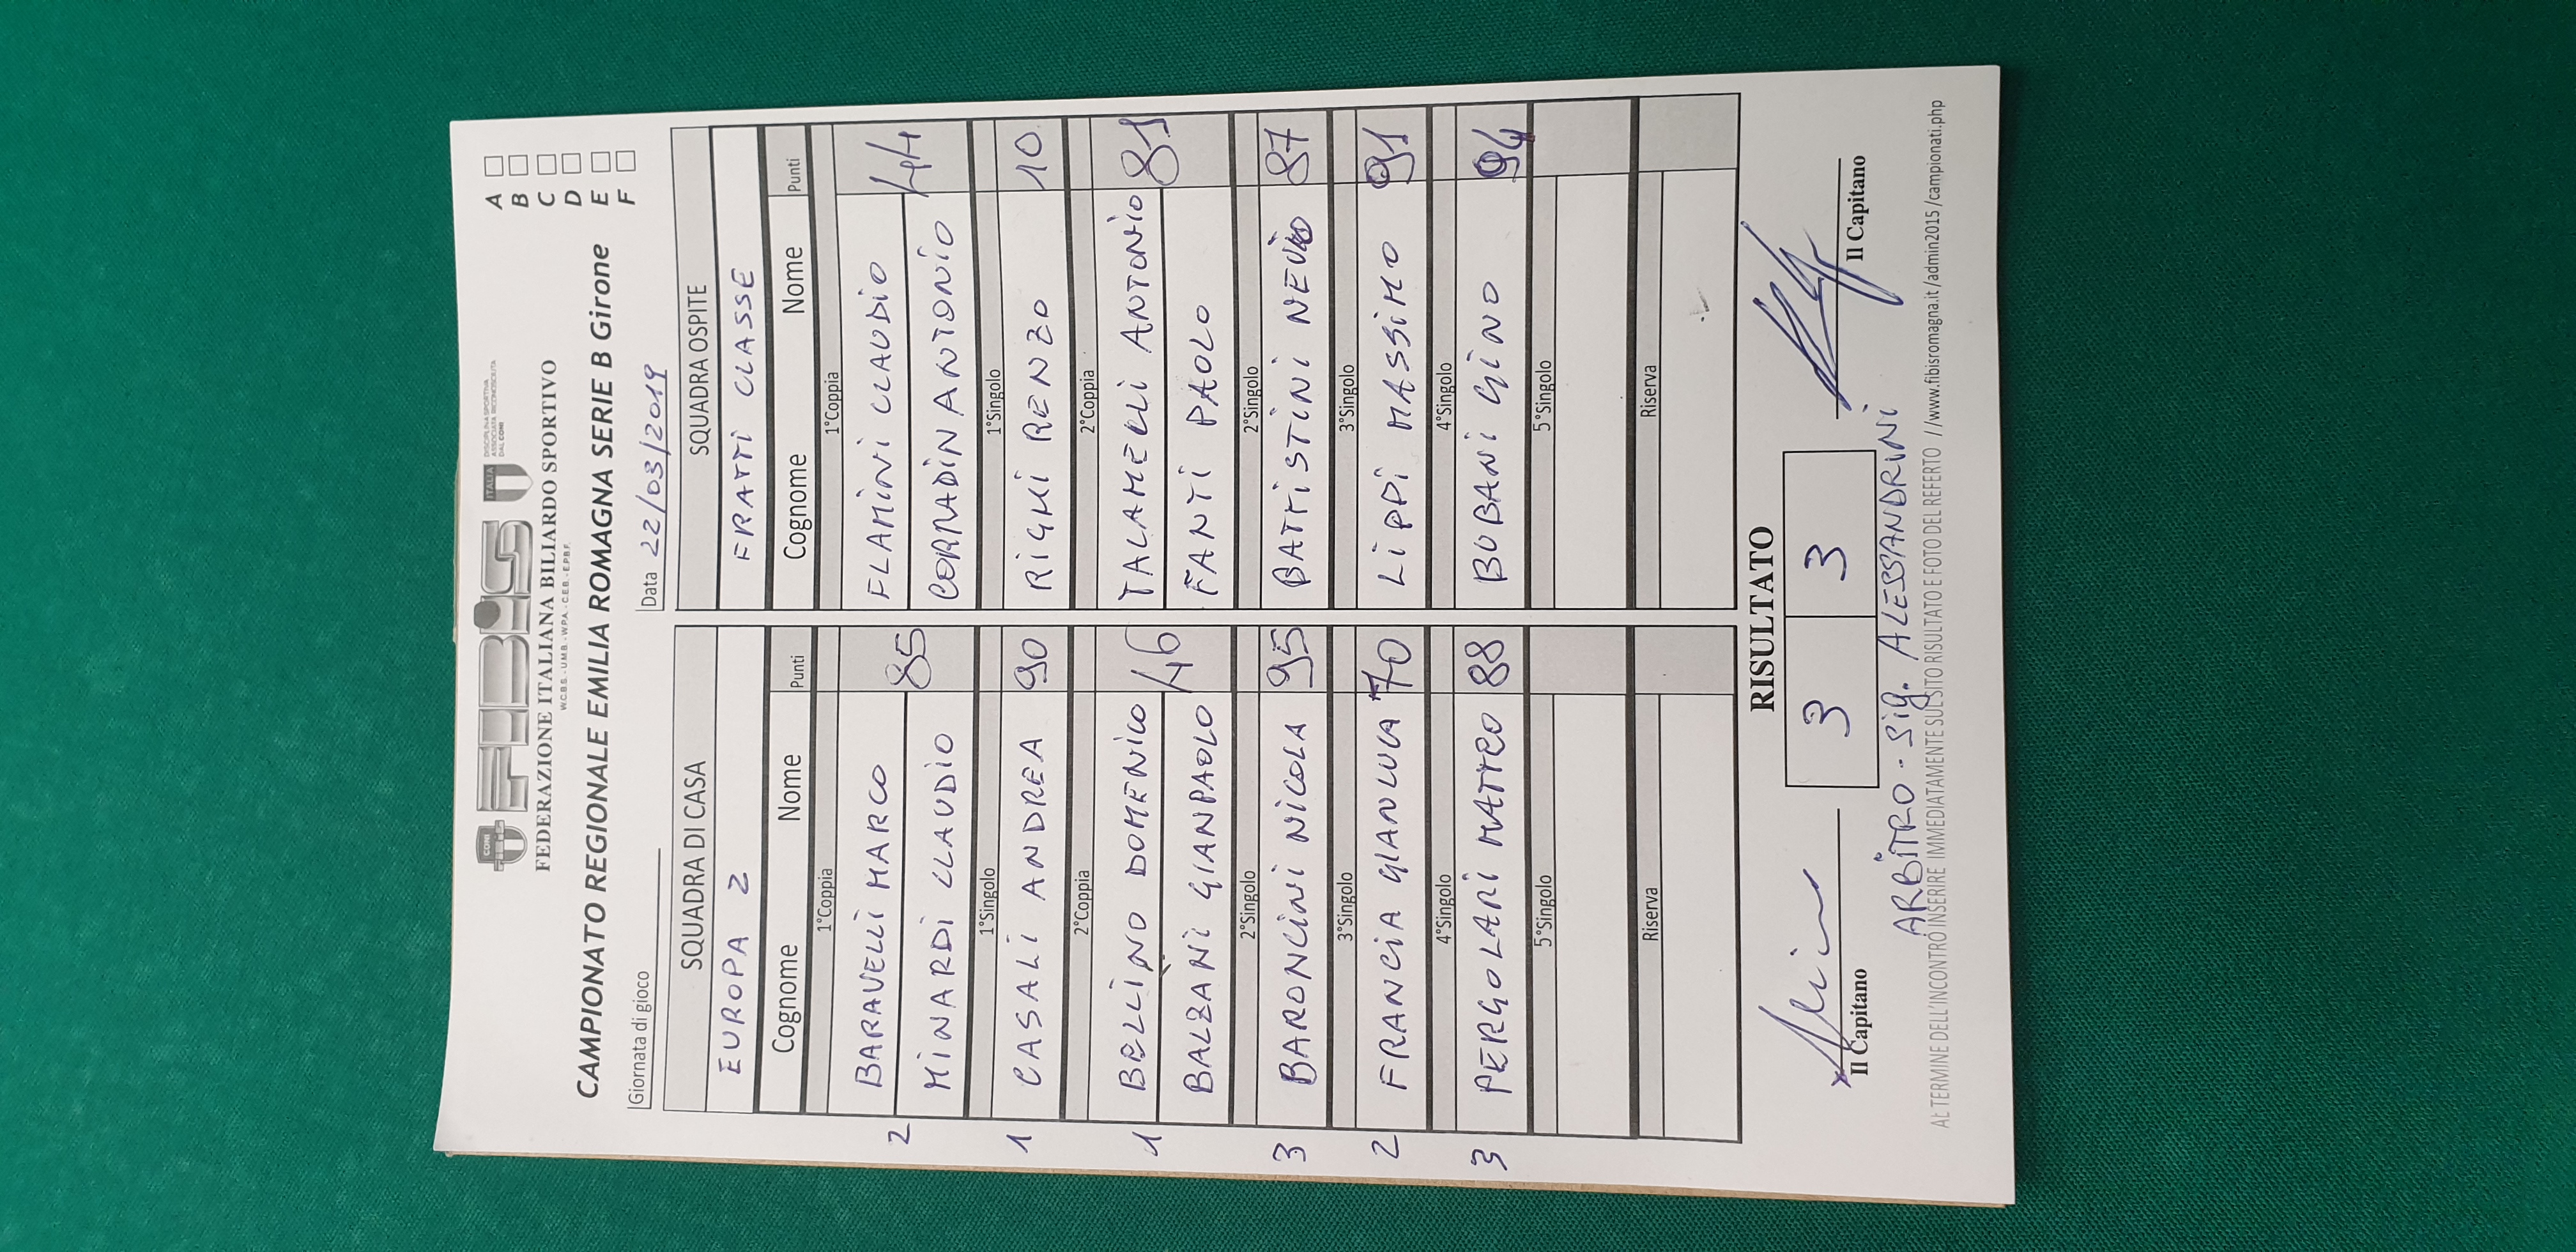 CONI
FIBiS
ITALIA
DISCIPLINA SPORTIVA
ASSOCIATA RICONOSCIUTA
DAL CONI
FEDERAZIONE ITALIANA BILIARDO SPORTIVO
W.C.B.S. - U.M.B. - W.P.A. - C.E.B. - E.P.B.F.
CAMPIONATO REGIONALE EMILIA ROMAGNA SERIE B Girone
A
B
C
D
E
F
Giornata di gioco
Data 22/03/2019
SQUADRA DI CASA SQUADRA OSPITE
EUROPA 2 FRATTI CLASSE
Cognome Nome Punti Cognome Nome Punti
1°Coppia 1°Coppia
BARAVELLI MARCO FLAMINI CLAUDIO
2 MINARDI CLAUDIO 85 CORRADIN ANTONIO 44
1°Singolo 1°Singolo
1 CASALI ANDREA 90 RIGHI RENZO 10
2°Coppia 2°Coppia
BELLINO DOMENICO TALAMELLI ANTONIO
1 BALZANI GIANPAOLO 46 FANTI PAOLO 81
2°Singolo 2°Singolo
3 BARONCINI NICOLA 95 BATTISTINI NEVIO 87
3°Singolo 3°Singolo
2 FRANCIA GIANLUCA 70 LIPPI MASSIMO 91
4°Singolo 4°Singolo
3 PERGOLARI MATTEO 88 BUBANI GINO 94
5°Singolo 5°Singolo
Riserva Riserva
RISULTATO
3 3
Il Capitano Il Capitano
ARBITRO - Sig. ALESSANDRINI
AL TERMINE DELL'INCONTRO INSERIRE IMMEDIATAMENTE SUL SITO RISULTATO E FOTO DEL REFERTO //www.fibisromagna.it/admin2015/campionati.php